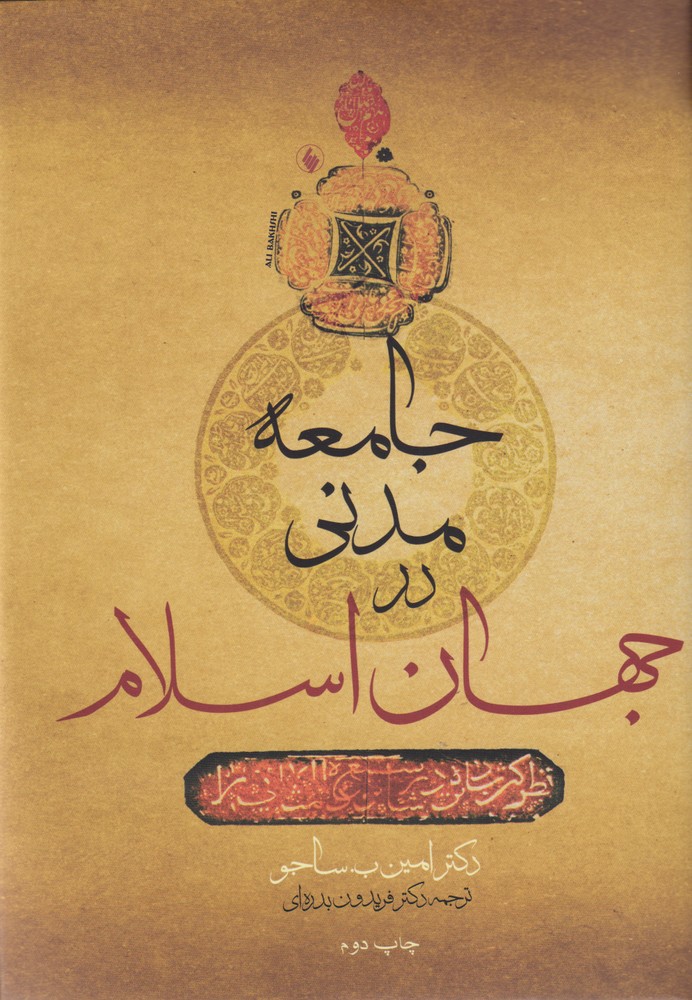 ALI BAKHSHI
جامعه
مدنی
در
جهان اسلام
دکتر امین ب. ساجو
ترجمه دکتر فریدون بدره‌ای
چاپ دوم